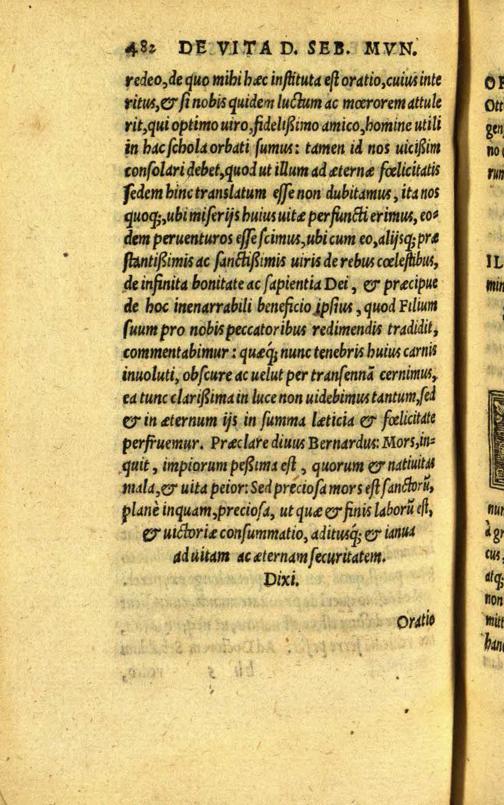 482 DE VITA D. SEB. MVN.
redeo, de quo mihi hæc instituta est oratio, cuius inte
ritus, & si nobis quidem luctum ac mœrorem attule
rit, qui optimo uiro, fidelißimo amico, homine utili
in hac schola orbati sumus: tamen id nos uicißim
consolari debet, quod ut illum ad æternæ fœlicitatis
sedem hinc translatum esse non dubitamus, ita nos
quoq;, ubi miserijs huius uitæ perfuncti erimus, eo-
dem peruenturos esse scimus, ubi cum eo, alijsq; præ
stantißimis ac sanctißimis uiris de rebus cœlestibus,
de infinita bonitate ac sapientia Dei, & præcipue
de hoc inenarrabili beneficio ipsius, quod Filium
suum pro nobis peccatoribus redimendis tradidit,
commentabimur: quæq; nunc tenebris huius carnis
inuoluti, obscure ac uelut per transennã cernimus,
ea tunc clarißima in luce non uidebimus tantum, sed
& in æternum ijs in summa læticia & fœlicitate
perfruemur. Præclare diuus Bernardus: Mors, in-
quit, impiorum peßima est, quorum & natiuitas
mala, & uita peior: Sed preciosa mors est sanctorũ,
planè inquam, preciosa, ut quæ & finis laborũ est,
& uictoriæ consummatio, aditusq; & ianua
ad uitam ac æternam securitatem.
Dixi.
Oratio